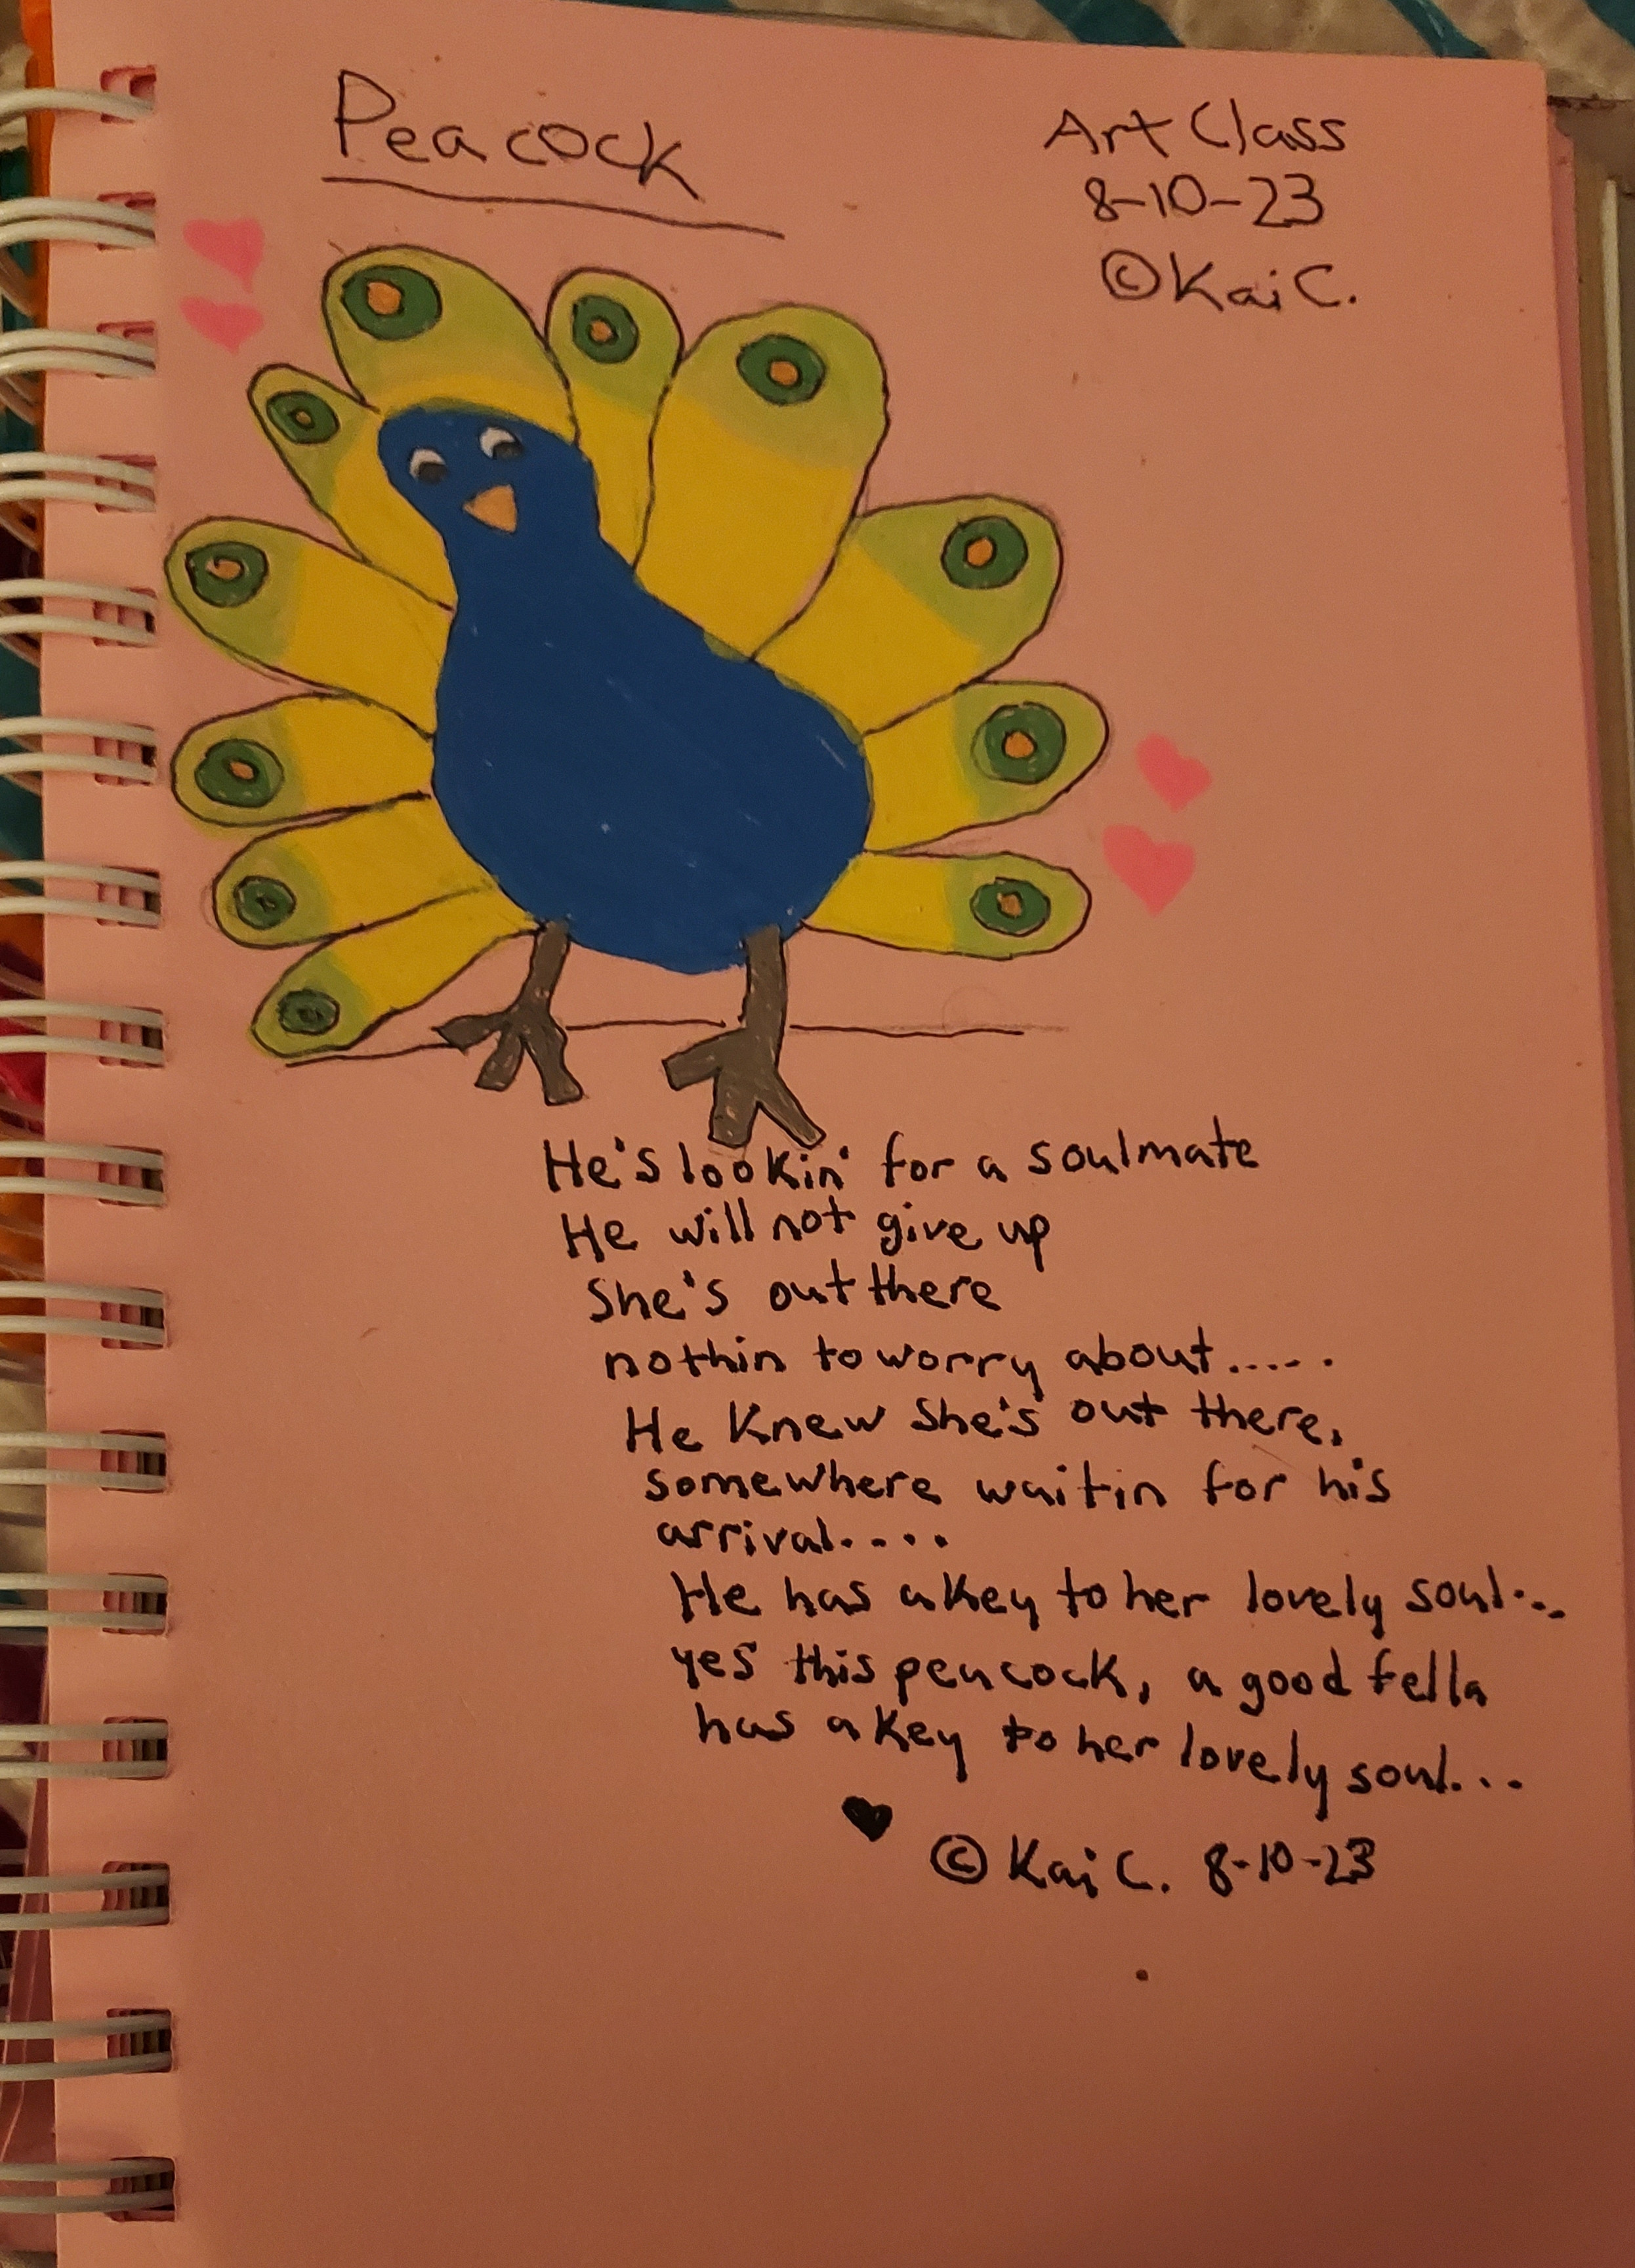 Peacock
Art Class
8-10-23
©Kai C.
He's lookin' for a soulmate
He will not give up
She's out there
nothin to worry about.....
He knew she's out there,
somewhere waitin for his
arrival....
He has a key to her lovely soul...
yes this peacock, a good fella
has a key to her lovely soul...
© Kai C. 8-10-23